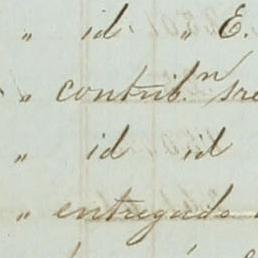 " id. " E.
" contrib.n sre
" id id
" entregado